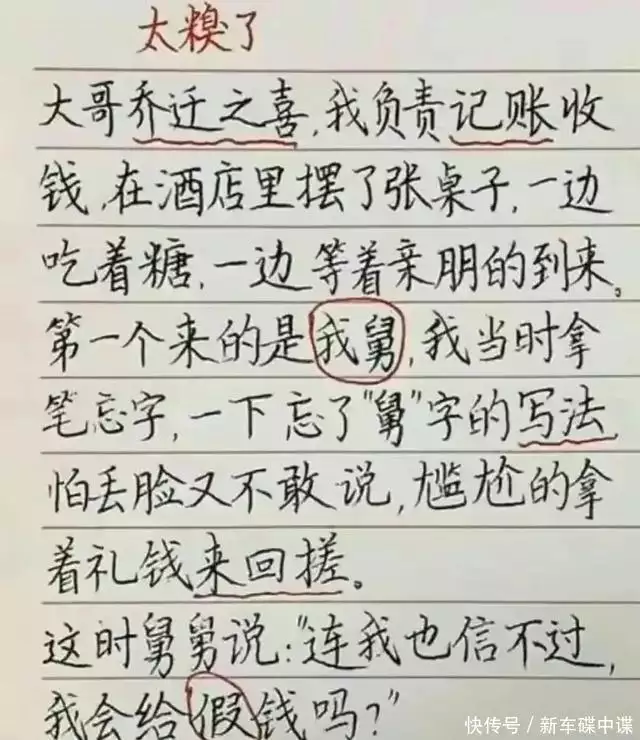 太糗了
大哥乔迁之喜,我负责记账收
钱,在酒店里摆了张桌子,一边
吃着糖,一边等着亲朋的到来。
第一个来的是我舅,我当时拿
笔忘字,一下忘了"舅"字的写法
怕丢脸又不敢说,尴尬的拿
着礼钱来回搓。
这时舅舅说:"连我也信不过,
我会给假钱吗?"
快传号/新车碟中谍